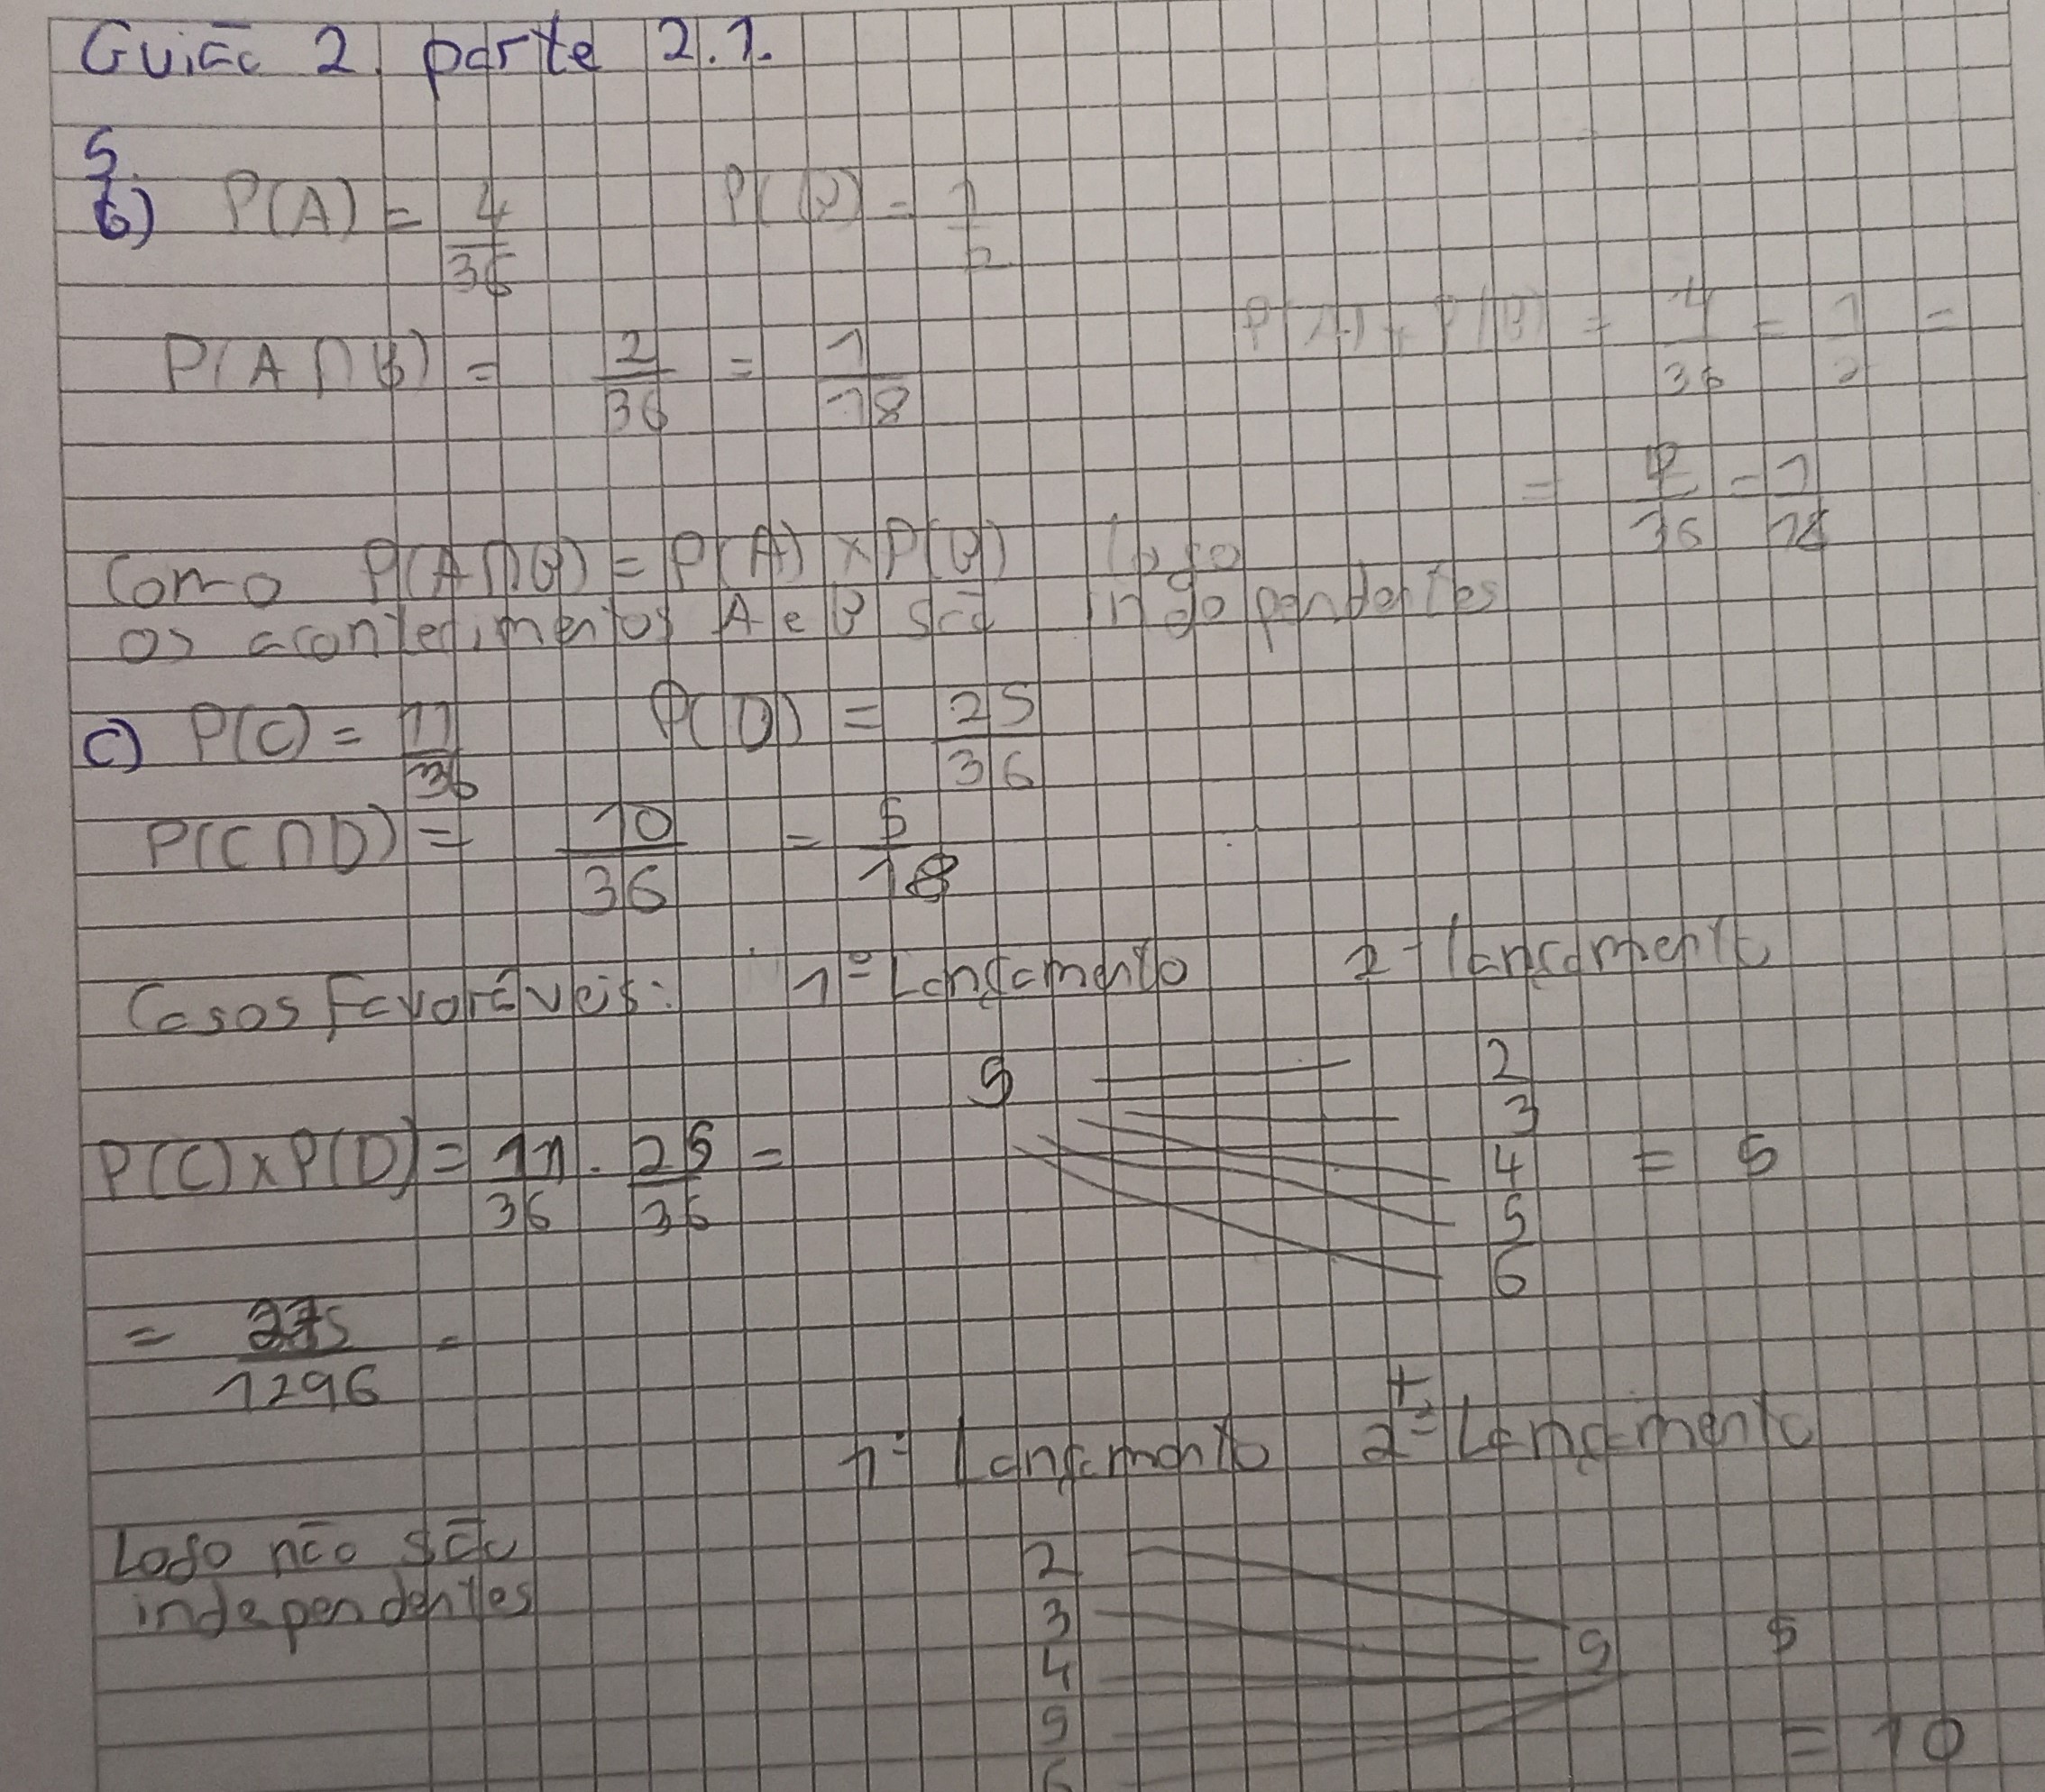 Guião 2, parte 2.1.
5.
b) P(A) = 4/36 P(B) = 1/2
P(A ∩ B) = 2/36 = 1/18
P(A) x P(B) = 4/36 = 1/2 =
= 2/36 = 1/18
Como P(A∩B) = P(A) x P(B) logo
os acontecimentos A e B são independentes
c) P(C) = 11/36 P(D) = 25/36
P(C ∩ D) = 10/36 = 5/18
Casos Favoráveis: 1º Lançamento 2º lançamento
5 2
3
P(C) x P(D) = 11/36 . 25/36 = 4 = 5
5
6
= 275/1296 =
+
1º Lançamento 2º Lançamento
Logo não são
independentes
2
3
5 5
4
5
= 10
6